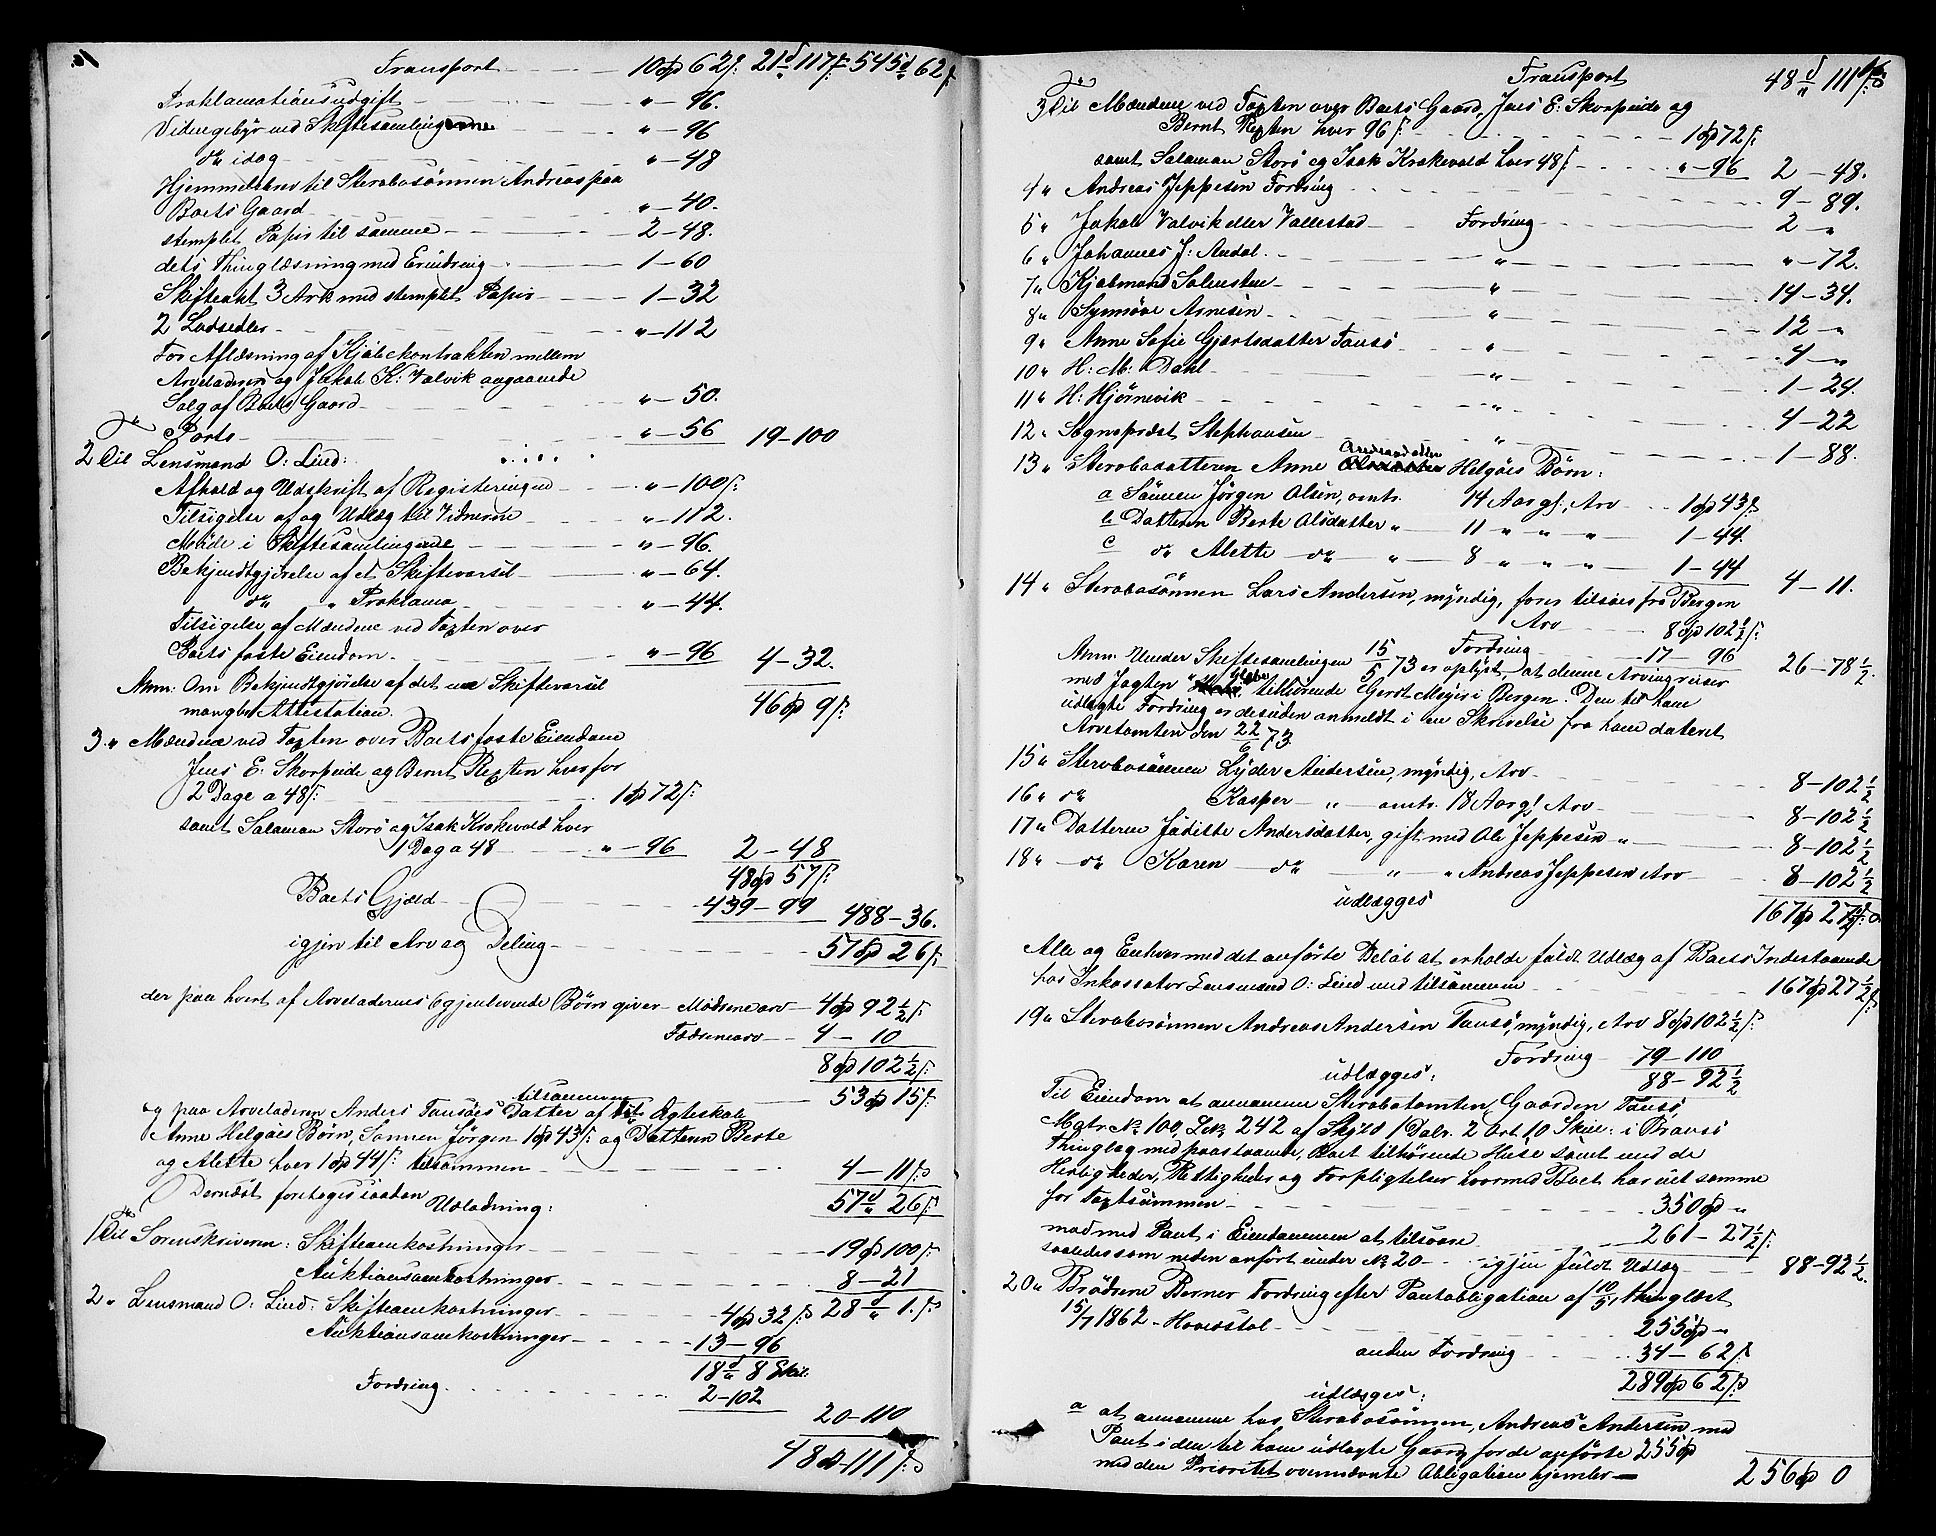 Transport 10 62 21 117 545 62
Proklamationsudgift " - 96.
Vidnegebyr ved Skiftesamlingerne " - 96
do idag " - 48
Hjemmelsbrev til Sterbosønnen Andreas paa
Boets Gaard " - 40.
stemplet Papir til samme 2 - 48.
dets Thinglæsning med Erindring 1 - 60
Skifteakt 3 Ark med stemplet Papir 1 - 32
2 Lodsedler " - 112
For Aflæsning af Kjøbekontrakten mellem
Arveladeren og Jakob K: Valvik angaaende
Salg af Boets Gaard " - 50.
Porto " - 56 19 - 100
2 Til Lensmand O: Lind:
Afhold og Udskrift af Registeringen " - 100
Tilsigelse af og Udlæg til Vidnerne " - 112.
Møde i Skiftesamlingerne " - 96.
Bekjendtgjørelse af et Skiftevarsel " - 64.
do " Proklama " - 44.
Tilsigelse af Mændene ved Taxten over
Boets faste Eiendom " - 96 4 - 32.
Anm: Om Bekjendtgjørelse af det ene Skiftevarsel 46 9
mangler Attestation.
3 " Mændene ved Taxten over Boets faste Eiendom
Jens E: Skorpeide og Bernt Rexten hver for
2 Dage a 48 1 72
samt Salamon Storø og Isak Krokevold hver
1 Dag a 48 " - 96 2 - 48
48 57
Boets Gjæld 439 - 99 488 - 36.
igjen til Arv og Deling 57 26
der paa hvert af Arveladernes 6 gjenlevende Børn giver Mødrenearv 4 92½
Fædrenearv 4 - 10
8 102½
53 15
tilsammen
og paa Arveladeren Anders Tansøes Datter af Ægteskab
Anne Helgøes Børn, Sønnen Jørgen 1 43 og Datteren Berte
og Alette hver 1 44 tilsammen 4 - 11
Dernæst foretoges saadan 57 26
Udlodning:
1 Til Sorenskriveren: Skifteomkostninger 19 100
Auktionsomkostninger 8 - 21
28 1
2 " Lensmand O: Lind: Skifteomkostninger 4 32
Auktionsomkostninger 13 - 96
18 8 Skil:
Fordring 2 - 102
20 - 110
48 - 111
Transport 48 111
3 Til Mændene ved Taxten over Boets Gaard, Jens E: Skorpeide og
Bernt Rexten hver 96 1 72
samt Salamon Storø og Isak Krokevold hver 48 " - 96 2 - 48.
4 " Andreas Jeppesen Fordring 9 - 89.
5 " Jakob Valvik eller Vallestad Fordring 2 "
6 " Johannes J: Andal " " - 72.
7 " Kjøbmand Solensten " 14 - 34.
8 " Synnøve Arnesen " 12 - "
9 " Anne Sofie Gjertsdatter Tansø " 4 - "
10 " H: M: Dahl " 1 - 24.
11 " H: Hjørnevik " 4 - 22
12 " Sogneprest Stephansen " 1 - 88.
13 " Sterbodatteren Anne Helgøes Børn:
a Sønnen Jørgen Olsen, omtr. 14 Aar gl., Arv 1 43
b Datteren Berte Olsdatter " 11 " " " 1 - 44.
c do Alette do " 8 " " " 1 - 44 4 - 11.
14 " Sterbosønnen Lars Andersen, myndig, fører tilsøes fra Bergen
Arv 8 102½
Fordring 17 96 26 - 78½
Anm: Under Skiftesamlingen 15/5 73 er oplyst, at denne Arving reiser
med Jagten tilhørende Gerdt Meyer i Bergen. Den til ham
udlagte Fordring er desuden anmeldt i en Skrivelse fra ham dateret
Arvetomten den 22/6 73.
15 " Sterbosønnen Lyder Andersen, myndig, Arv 8 - 102½
16 " do Kasper " omtr. 18 Aar gl. Arv 8 - 102½
17 " Datteren Juditte Andersdatter, gift med Ole Jeppesen " 8 - 102½
18 " do Karen do " " Andreas Jeppesen Arv 8 - 102½
udlægges 167 27½
Alle og Enhver med det anførte Beløb at erholde fuldt Udlæg af Boets Indestaaende
hos Inkassator Lensmand O: Lind med tilsammen 167 27½
19 " Sterbosønnen Andreas Andersen Tansø, myndig, Arv 8 102½
Fordring 79 - 110
udlægges: 88 - 92½
Til Eiendom at annamme Sterbotomten, Gaarden Tansø,
Matr. No 100, L.No 242 af Skyld 1 Dalr. 2 Ort 10 Skil: i Bransø
Thinglag med paastaaende, Boet tilhørende Huse samt med de
Herligheder, Rettigheder og Forpligtelser hvormed Boet har eiet samme
for Taxtsummen 350 "
mod med Pant i Eiendommen at tilsvare 261 - 27½
saaledes som neden anført under No 20 igjen fuldt Udlæg 88 - 92½
20 " Brødrene Berner Fordring efter Pantobligation af 10/5, thinglæst
15/7 1862 - Hovedstol 255 "
anden Fordring 34 - 62
289 62
udlægges:
a at annamme hos Sterbosønnen, Andreas Andersen med
Pant i den til ham udlagte Gaard for de anførte 255
med den Prioritet ovennævnte Obligation hjemler 256 0